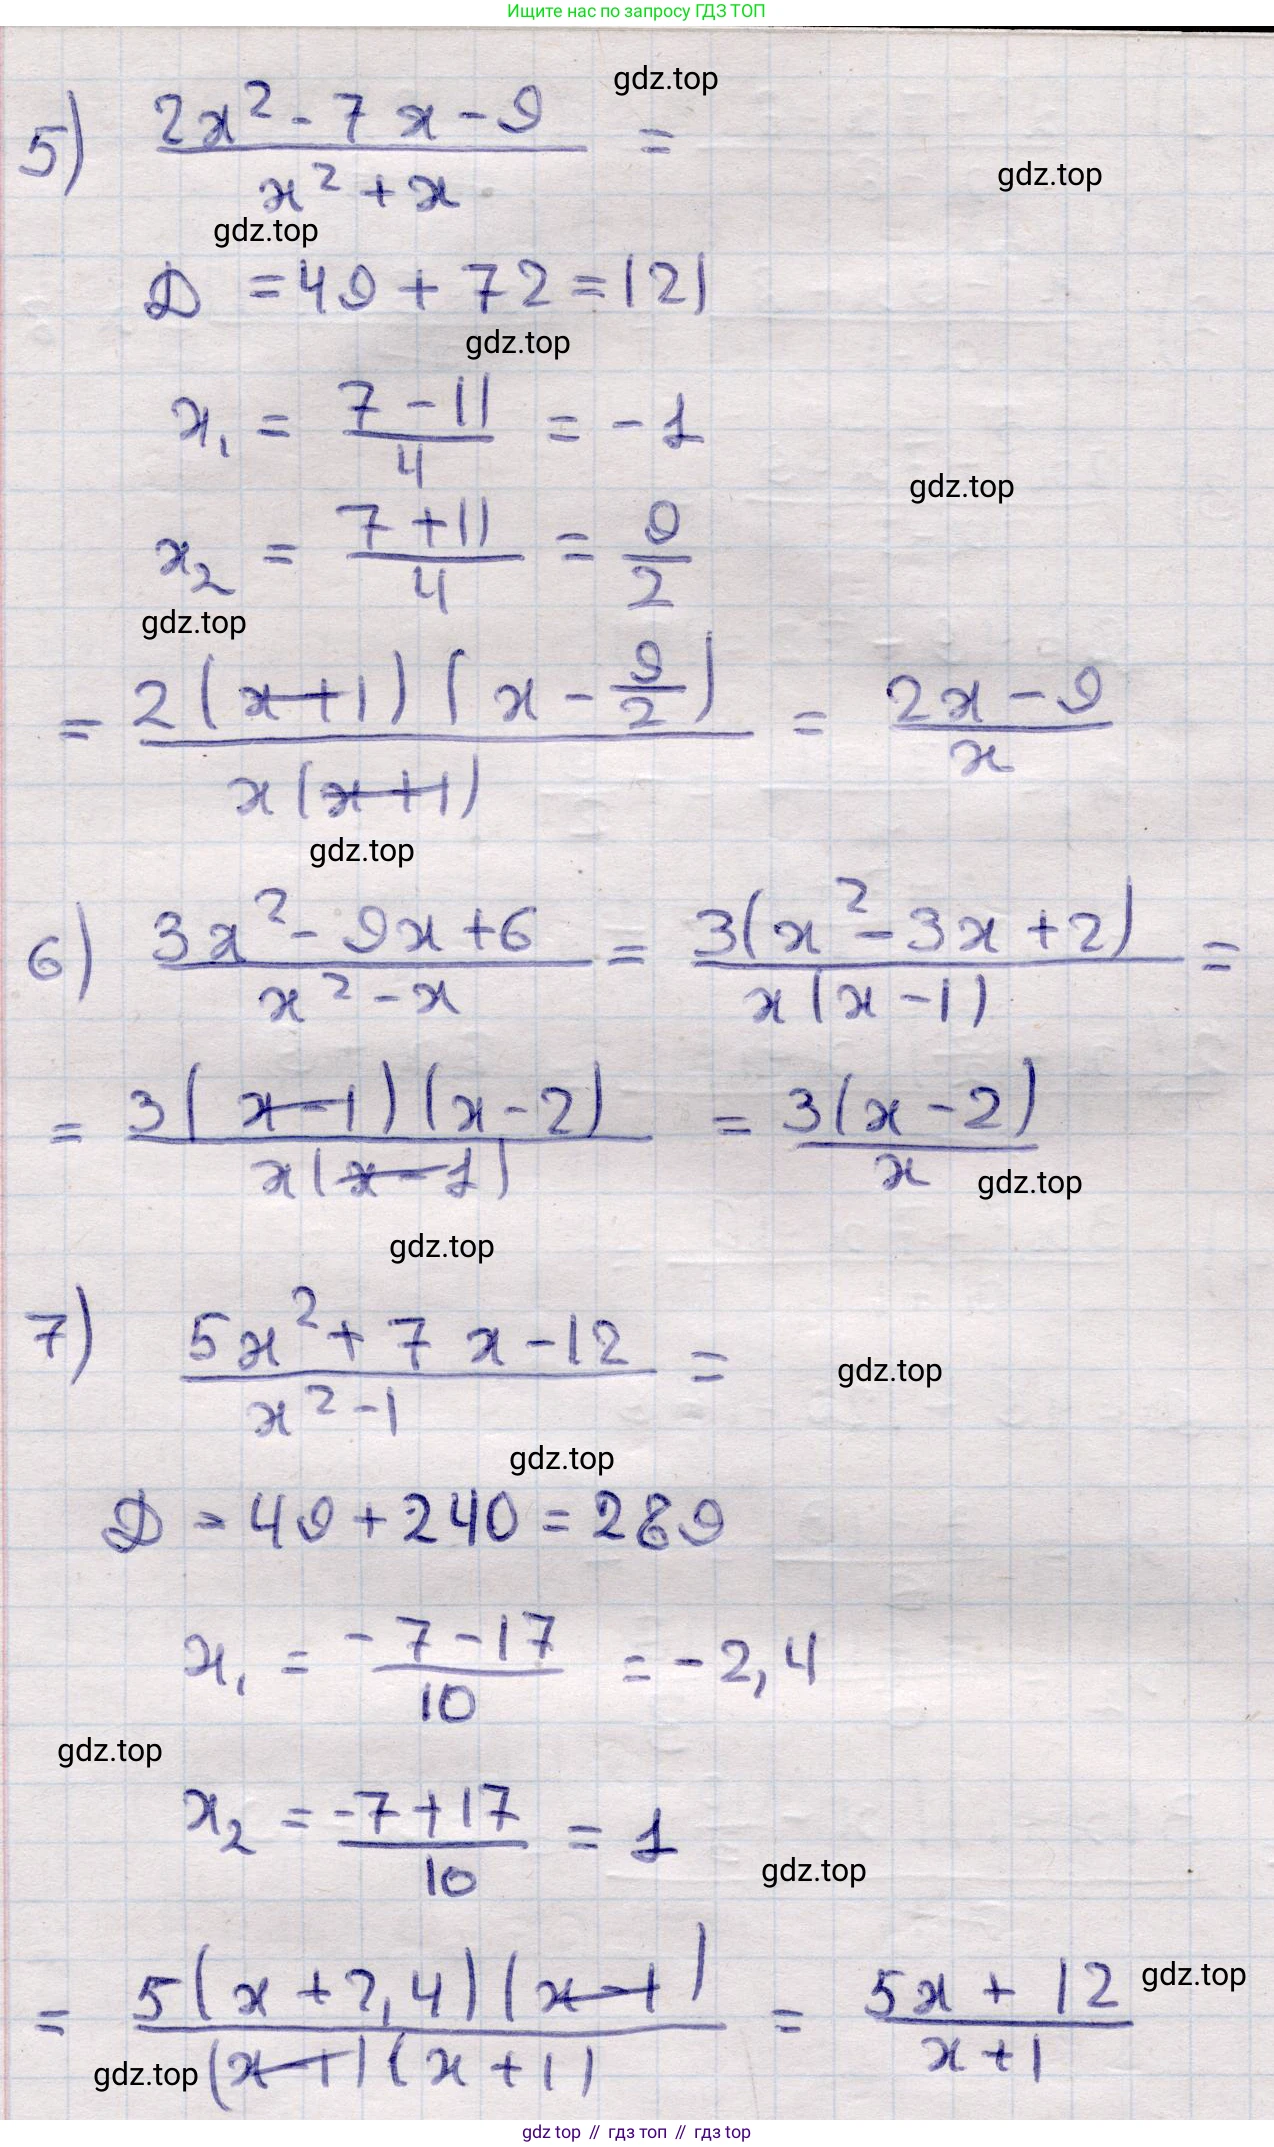 Ищите нас по запросу ГДЗ ТОП
gdz.top
5) (2x² - 7x - 9)/(x² + x) =
gdz.top
gdz.top
D = 49 + 72 = 121
gdz.top
x₁ = (7 - 11)/4 = -1
gdz.top
x₂ = (7 + 11)/4 = 9/2
gdz.top
= 2(x+1)(x - 9/2)/(x(x+1)) = (2x - 9)/x
gdz.top
6) (3x² - 9x + 6)/(x² - x) = 3(x² - 3x + 2)/(x(x - 1)) =
= 3(x-1)(x-2)/(x(x-1)) = 3(x-2)/x
gdz.top
gdz.top
7) (5x² + 7x - 12)/(x² - 1) =
gdz.top
gdz.top
D = 49 + 240 = 289
x₁ = (-7 - 17)/10 = -2,4
gdz.top
x₂ = (-7 + 17)/10 = 1
gdz.top
= 5(x + 2,4)(x - 1)/((x-1)(x+1)) = (5x + 12)/(x + 1)
gdz.top
gdz.top
gdz top // гдз топ // гдз top